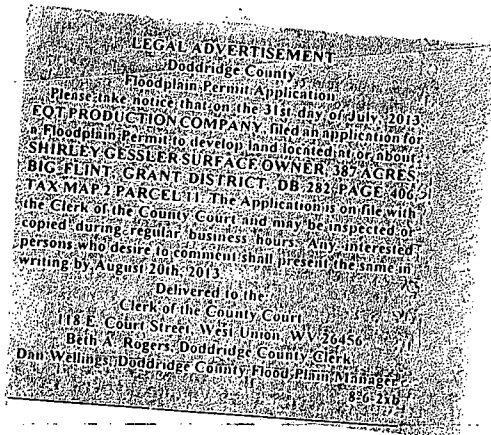 LEGAL ADVERTISEMENT
Doddridge County
Floodplain Permit Application
Please take notice that on the 31st day of July, 2013
EQT PRODUCTION COMPANY, filed an application for
a Floodplain Permit to develop land located at or about
SHIRLEY GESSLER SURFACE OWNER, 387 ACRES
BIG FLINT, GRANT DISTRICT, DB 282, PAGE 406,
TAX MAP 2 PARCEL 11. The Application is on file with
the Clerk of the County Court and may be inspected or
copied during regular business hours. Any interested
persons who desire to comment shall present the same in
writing by August 20th, 2013.
Delivered to the
Clerk of the County Court
118 E. Court Street, West Union, WV 26456
Beth A. Rogers, Doddridge County Clerk
Dan Wellings, Doddridge County Flood Plain Manager
8-6-2xb